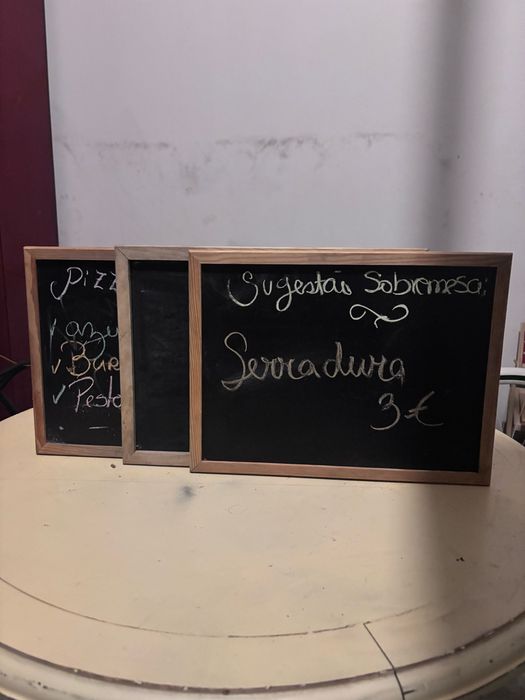 Pizz
azu
Bur
Pesto
Sugestão Sobremesa:
Serradura
3€